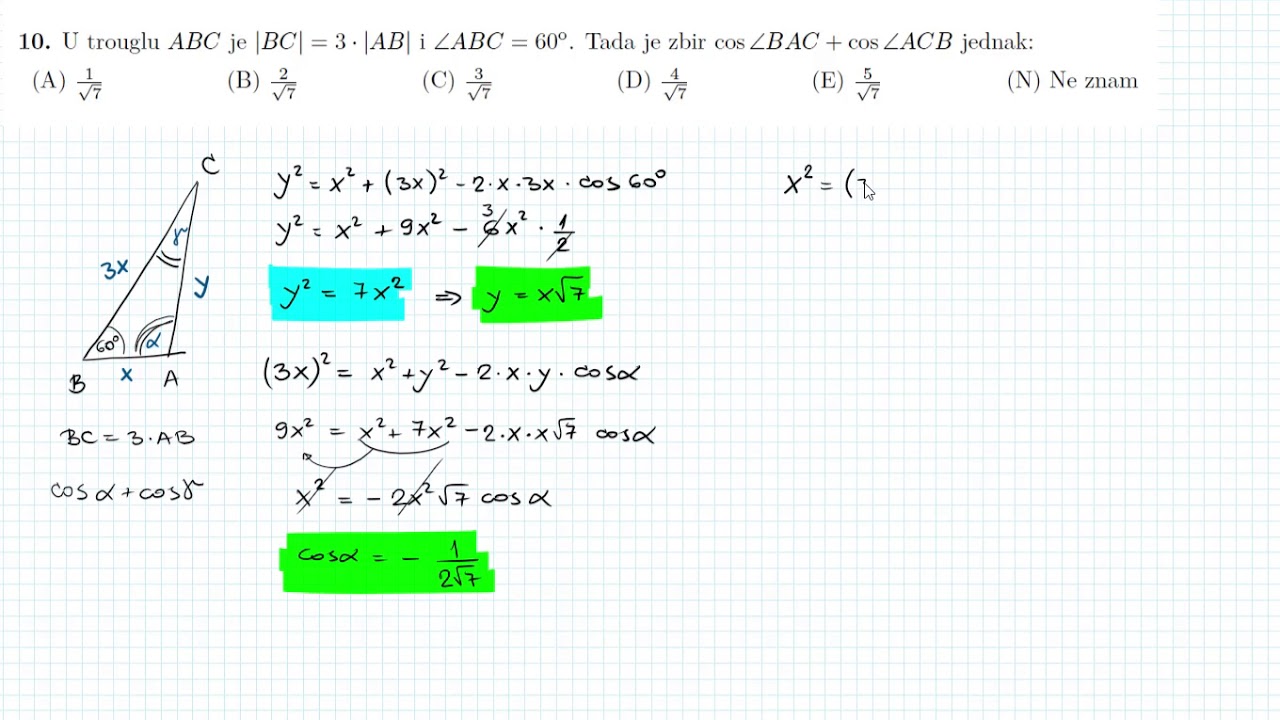 10. U trouglu ABC je |BC| = 3 · |AB| i ∠ABC = 60°. Tada je zbir cos ∠BAC + cos ∠ACB jednak:
(A) 1/√7 (B) 2/√7 (C) 3/√7 (D) 4/√7 (E) 5/√7 (N) Ne znam
C
γ
3x
y
60° α
B x A
BC = 3·AB
cosα + cosγ
y² = x² + (3x)² - 2·x·3x · cos 60°
3
y² = x² + 9x² - 6x² · 1/2
y² = 7x² ⇒ y = x√7
(3x)² = x² + y² - 2·x·y · cosα
9x² = x² + 7x² - 2·x·x√7 cosα
x² = - 2x²√7 cosα
cosα = - 1/2√7
x² = (